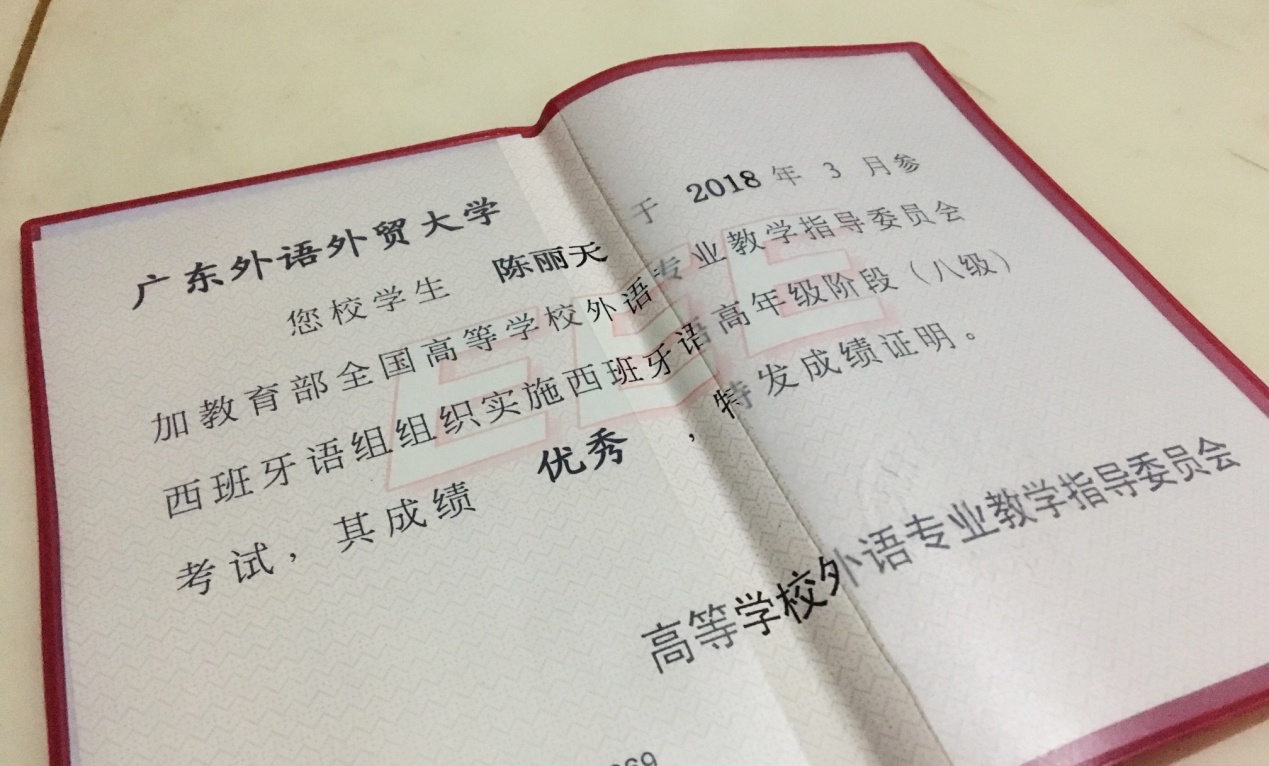 广东外语外贸大学
您校学生 陈丽天 于 2018 年 3 月参
加教育部全国高等学校外语专业教学指导委员会
西班牙语组组织实施西班牙语高年级阶段（八级）
考试，其成绩 优秀 ，特发成绩证明。
高等学校外语专业教学指导委员会
EEE